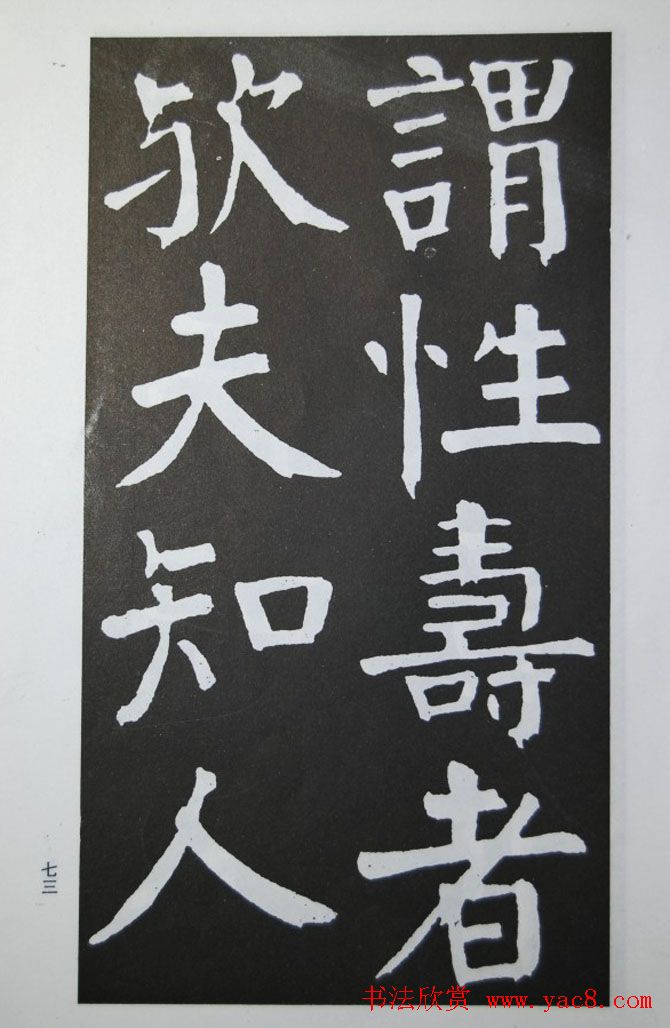 謂性壽者
欤夫知人
七三
书法欣赏 www.yac8.com